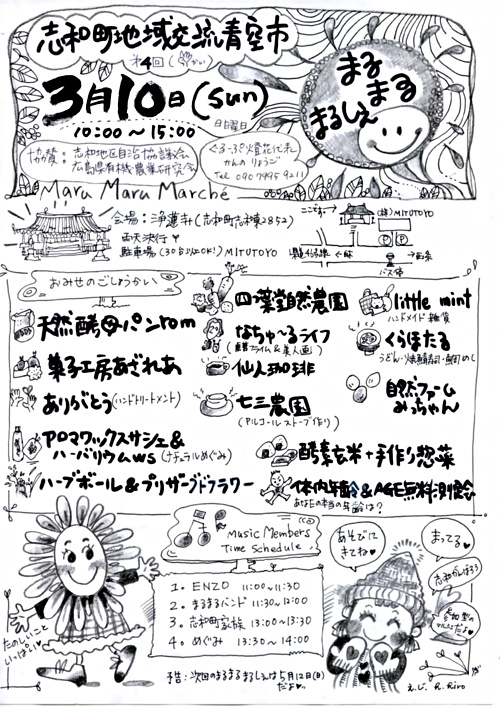 志和町地域交流青空市
第4回
3月10日(sun)
日曜日
10:00~15:00
まる
まる
まるしぇ
協賛:志和地区自治協議会
広島県有機農業研究会
ぐるーぷ燈花代表
Tel 090 7995 9211
Maru Maru Marché
会場:浄蓮寺(志和町志和東2852)
雨天決行
駐車場(30台以上OK!) MITUTOYO
ここです→
(株)MITUTOYO
P
P
←西条
バス停
おみせのごしょうかい
天然酵母パンrom
菓子工房あざれあ
ありがとう(ハンドトリートメント)
アロマワックスサシェ&
ハーバリウムws(ナチュラルめぐみ)
ハーブボール&プリザーブドフラワー
四葉自然農園
なちゅ~るライフ
仙人珈琲
七三農園
(アルコールストーブ作り)
酵素玄米+手作り惣菜
体内年齢&AGE無料測定会
あなたの本当の年齢は?
little mint
ハンドメイド雑貨
くらほたる
自然ファーム
みっちゃん
Music Members
Time Schedule
1。ENZO 11:00~11:30
2。まるまるバンド 11:30~12:00
3。志和町家族 13:00~13:30
4。めぐみ 13:30~14:00
たのしいこと
いっぱい♡
あそびに
きてね♥
まってる♥
志和がんばろう
参加型の
だよ♥
予告:次回のまるまるまるしぇは5月12日(日)
だよ♥
え.じ. R.Riro